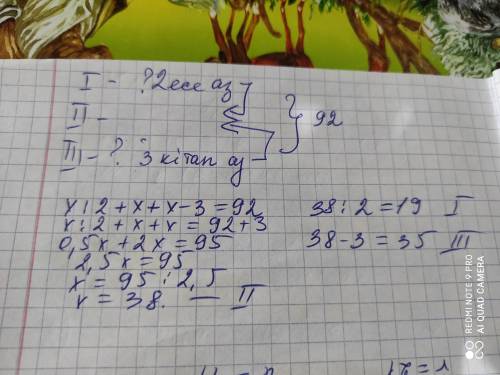 I - ? 2 есе аз
II -
} 92
III - ? 3 кітап аз
x : 2 + x + x - 3 = 92
x : 2 + x + x = 92 + 3
0,5x + 2x = 95
2,5x = 95
x = 95 : 2,5
x = 38. — II
38 : 2 = 19 I
38 - 3 = 35 III
REDMI NOTE 9 PRO
AI QUAD CAMERA